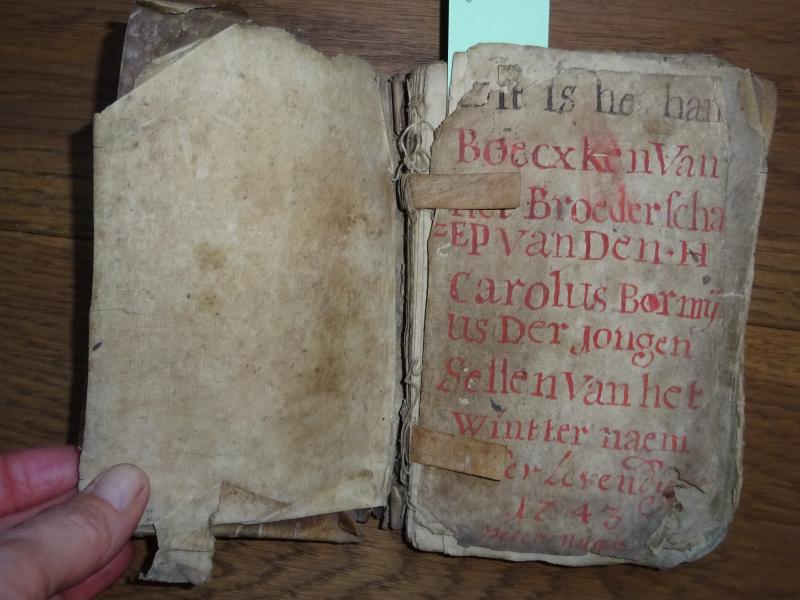 Dit is he han
Boecxken Van
het Broederscha
=Ep Van Den · H
Carolus Bormij
us Der jongen
Sellen Van het
Wintter naem
er Levend
1743